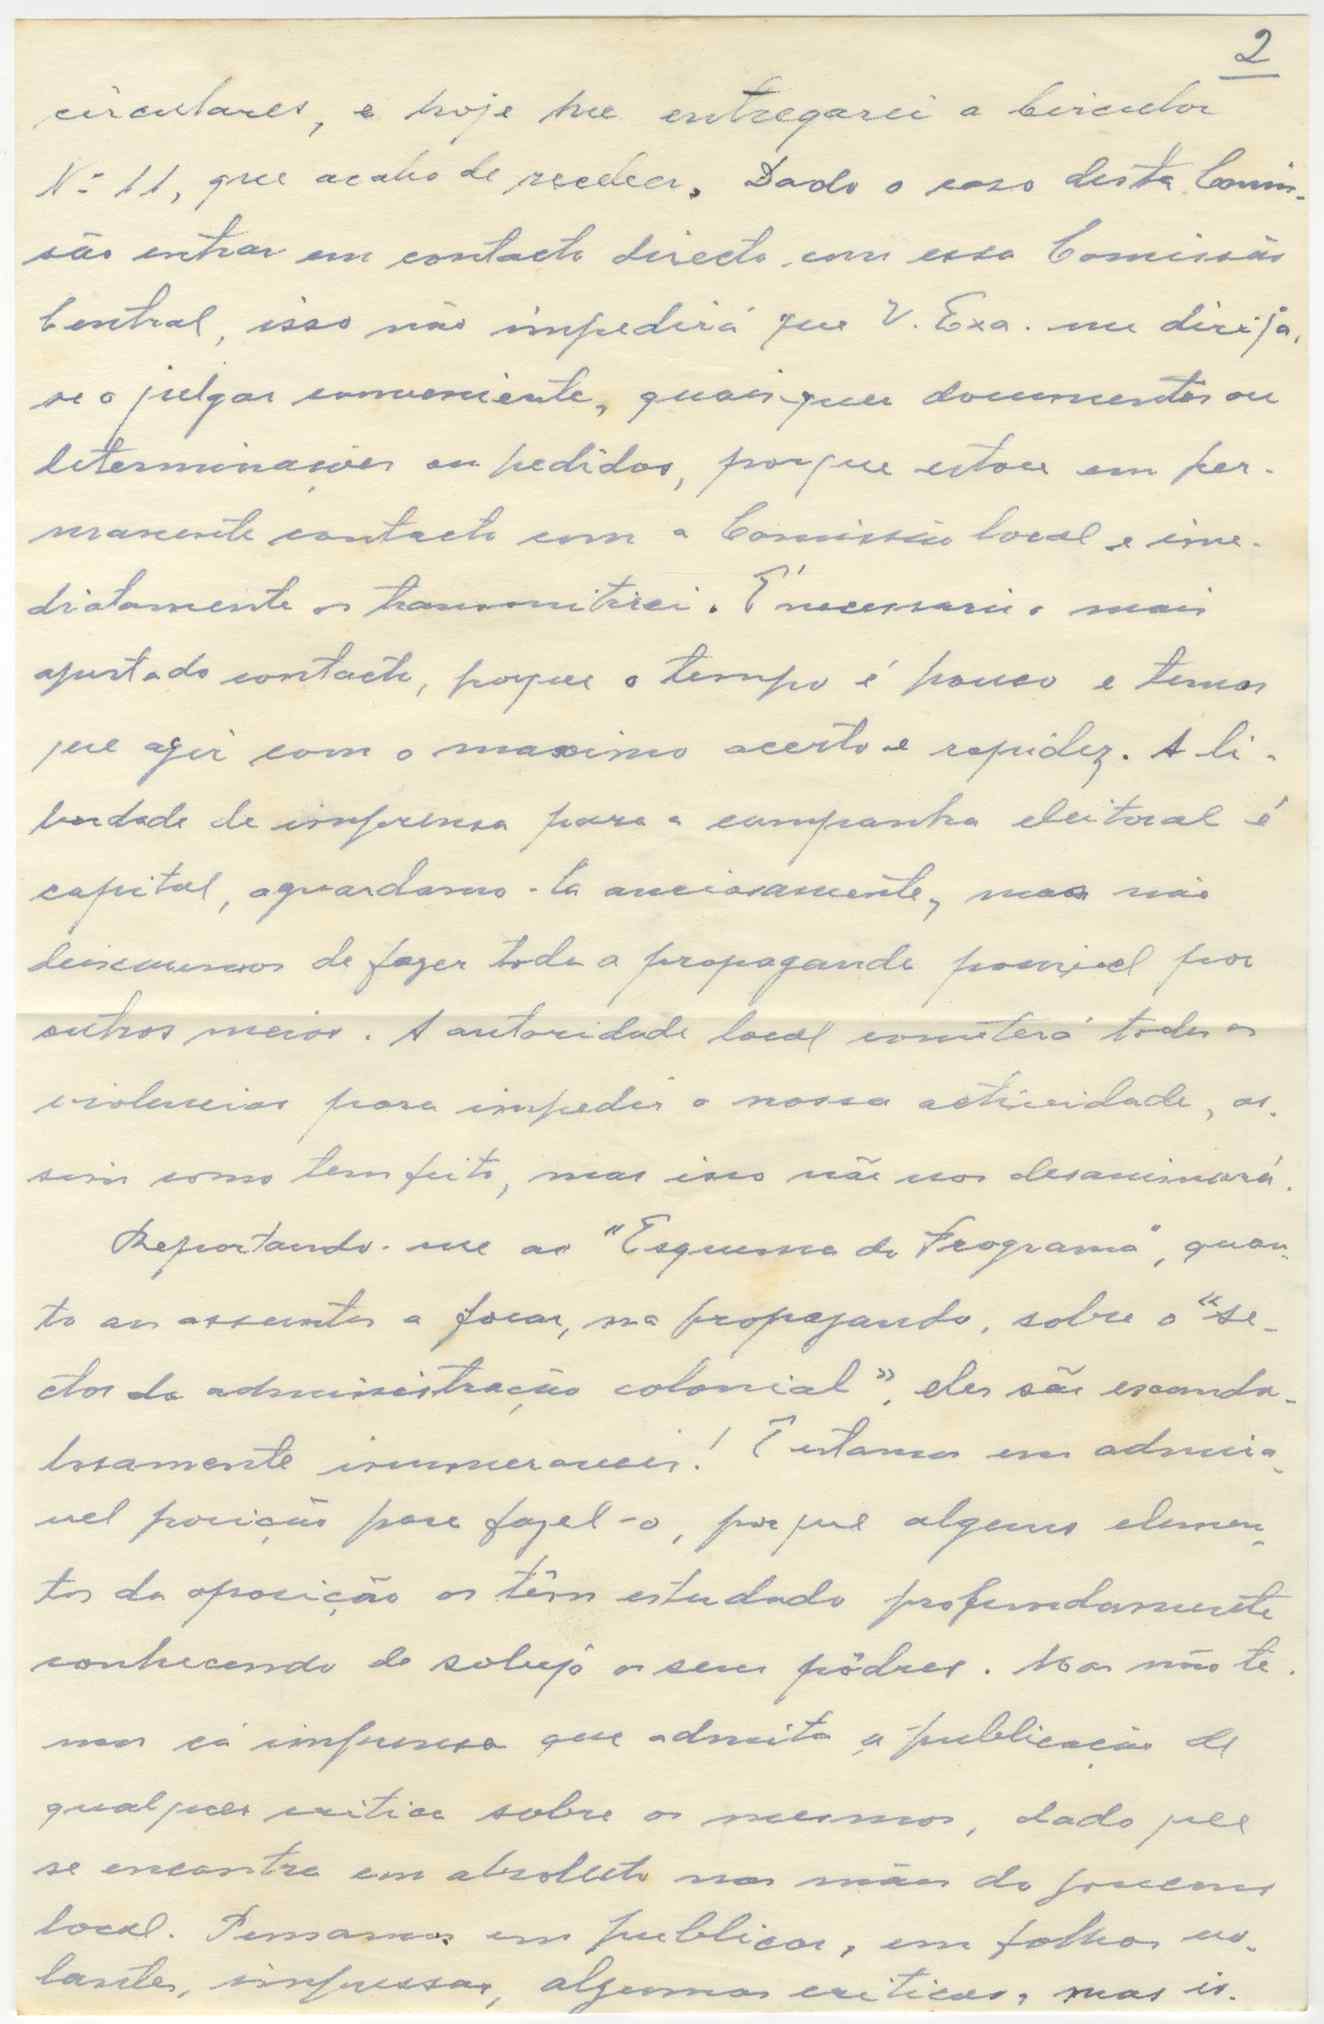 2
circulares, e hoje lhe entregarei a Circular
Nº 11, que acabo de receber. Dado o caso desta Comis-
são entrar em contacto directo com essa Comissão
Central, isso não impedirá que V. Exa. me dirija,
se o julgar conveniente, quaisquer documentos ou
determinações ou pedidos, porque estou em per-
manente contacto com a Comissão local e ime-
diatamente os transmitirei. É necessario o mais
apertado contacto, porque o tempo é pouco e temos
que agir com o maximo acerto e rapidez. A li-
berdade de imprensa para a campanha eleitoral é
capital, aguardamo-la anciosamente, mas não
deixaremos de fazer toda a propaganda possivel por
outros meios. A autoridade local cometerá todas as
violencias para impedir a nossa actividade, as-
sim como tem feito, mas isso não nos desanimará.
Reportando-me ao "Esquema do Programa", quan-
to aos assuntos a focar, na propaganda, sobre o "se-
ctor da administração colonial", eles são escanda-
losamente inumeraveis! E estamos em admira-
vel posição para fazel-o, porque alguns elemen-
tos da oposição os têm estudado profundamente
conhecendo de sobejo os seus pôdres. Mas não te-
mos cá imprensa que admita a publicação de
qualquer critica sobre os mesmos, dado que
se encontra em absoluto nas mãos do governo
local. Pensamos em publicar, em folhas vo-
lantes, impressas, algumas criticas, mas is-